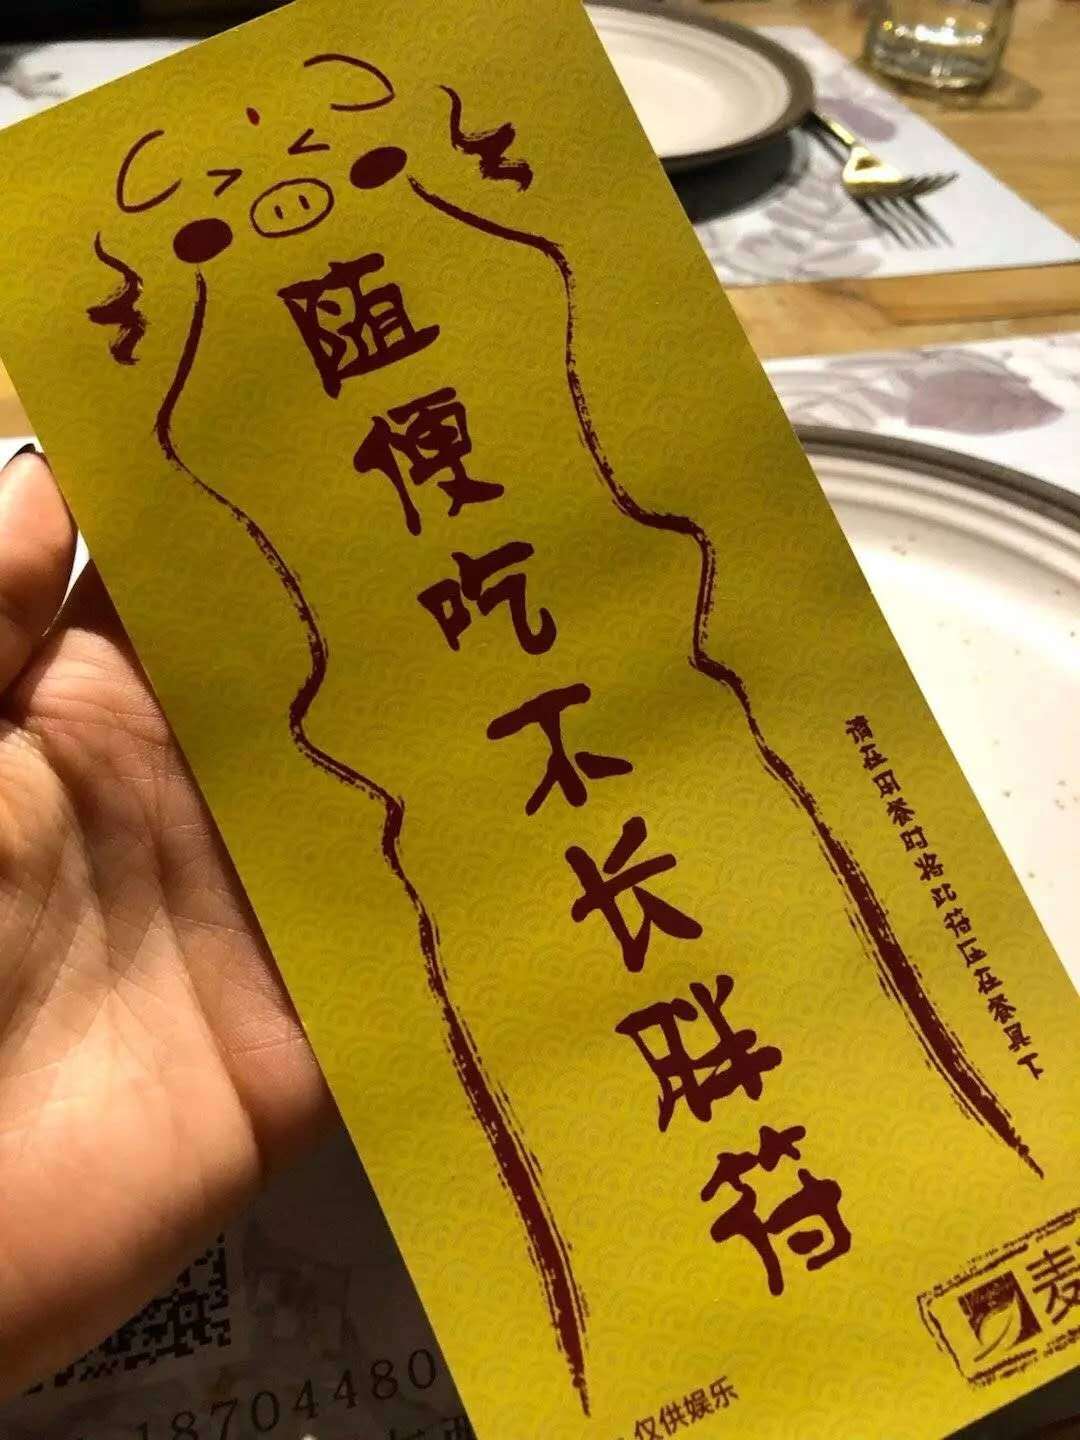 随便吃不长胖符
请在用餐时将此符压在餐具下
麦
仅供娱乐
18704480